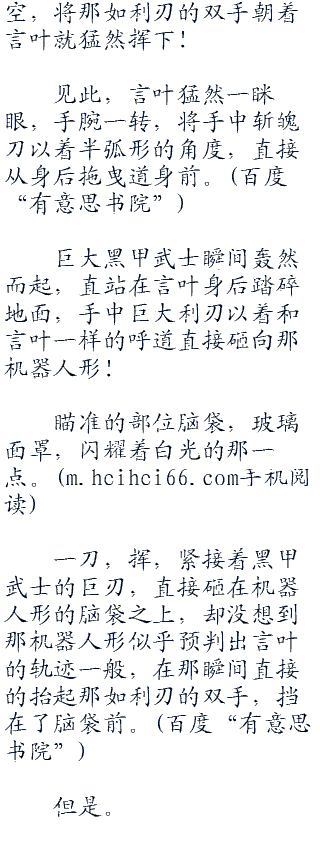 空，将那如利刃的双手朝着
言叶就猛然挥下！
见此，言叶猛然一眯
眼，手腕一转，将手中斩魄
刀以着半弧形的角度，直接
从身后拖曳道身前。(百度
“有意思书院”)
巨大黑甲武士瞬间轰然
而起，直站在言叶身后踏碎
地面，手中巨大利刃以着和
言叶一样的呼道直接砸向那
机器人形！
瞄准的部位脑袋，玻璃
面罩，闪耀着白光的那一
点。(m.hcihci66.com手机阅
读)
一刀，挥，紧接着黑甲
武士的巨刃，直接砸在机器
人形的脑袋之上，却没想到
那机器人形似乎预判出言叶
的轨迹一般，在那瞬间直接
的抬起那如利刃的双手，挡
在了脑袋前。(百度“有意思
书院”)
但是。